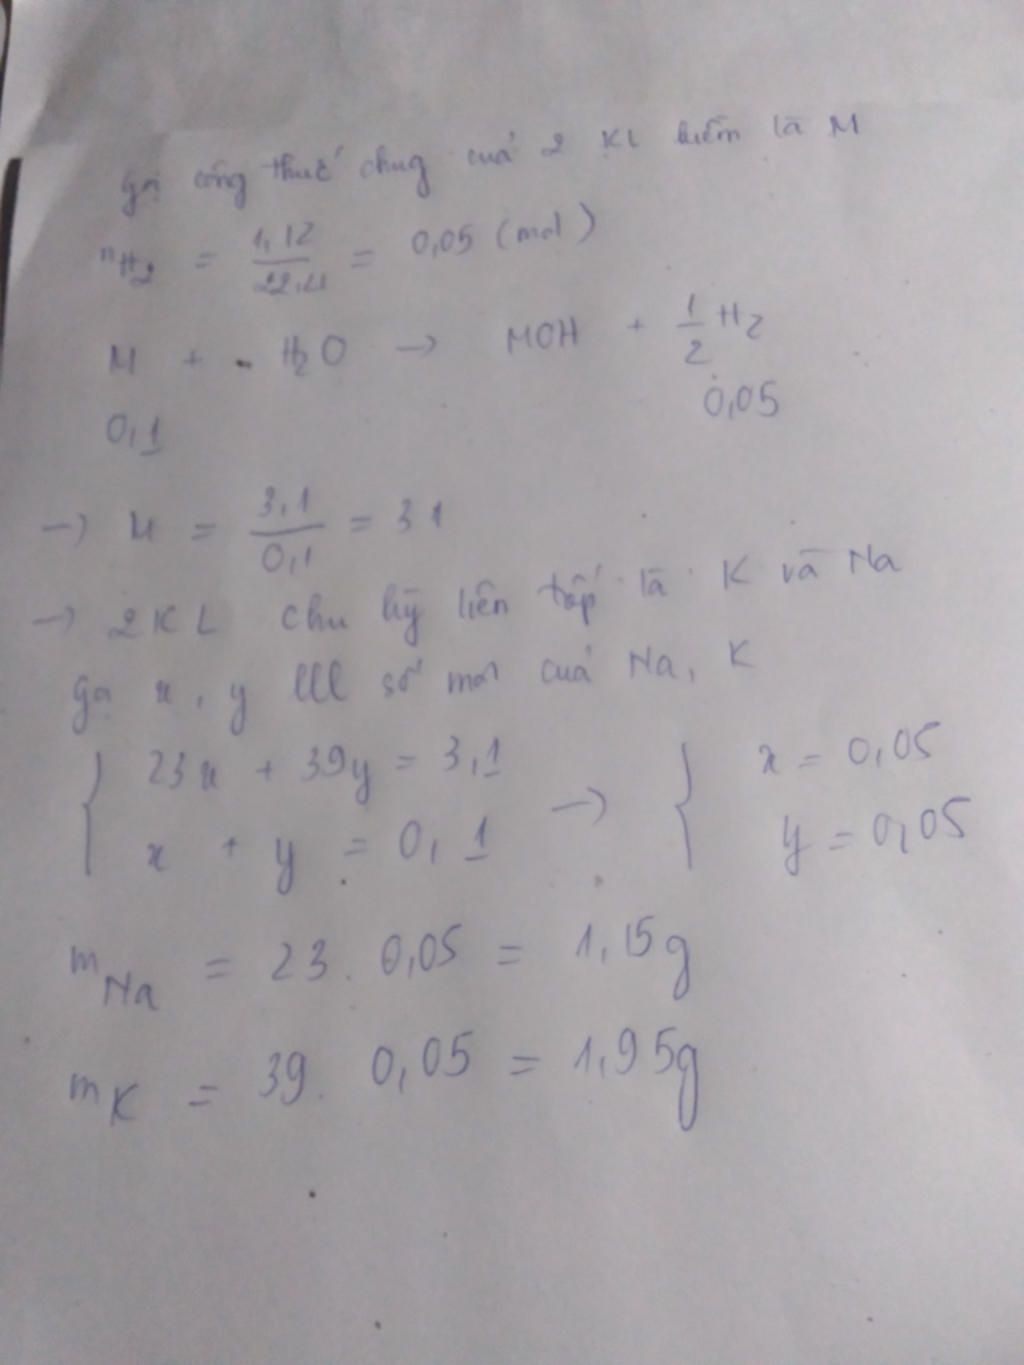 gọi công thức chug của 2 KL kiềm là M
nH2 = 1,12/22,4 = 0,05 (mol)
M + H2O → MOH + 1/2 H2
0,1 0,05
→ M = 3,1/0,1 = 31
→ 2KL chu kỳ liên tiếp là K và Na
gọi x, y lll số mol của Na, K
{ 23x + 39y = 3,1 → { x = 0,05
x + y = 0,1 y = 0,05
mNa = 23. 0,05 = 1,15g
mK = 39. 0,05 = 1,95g